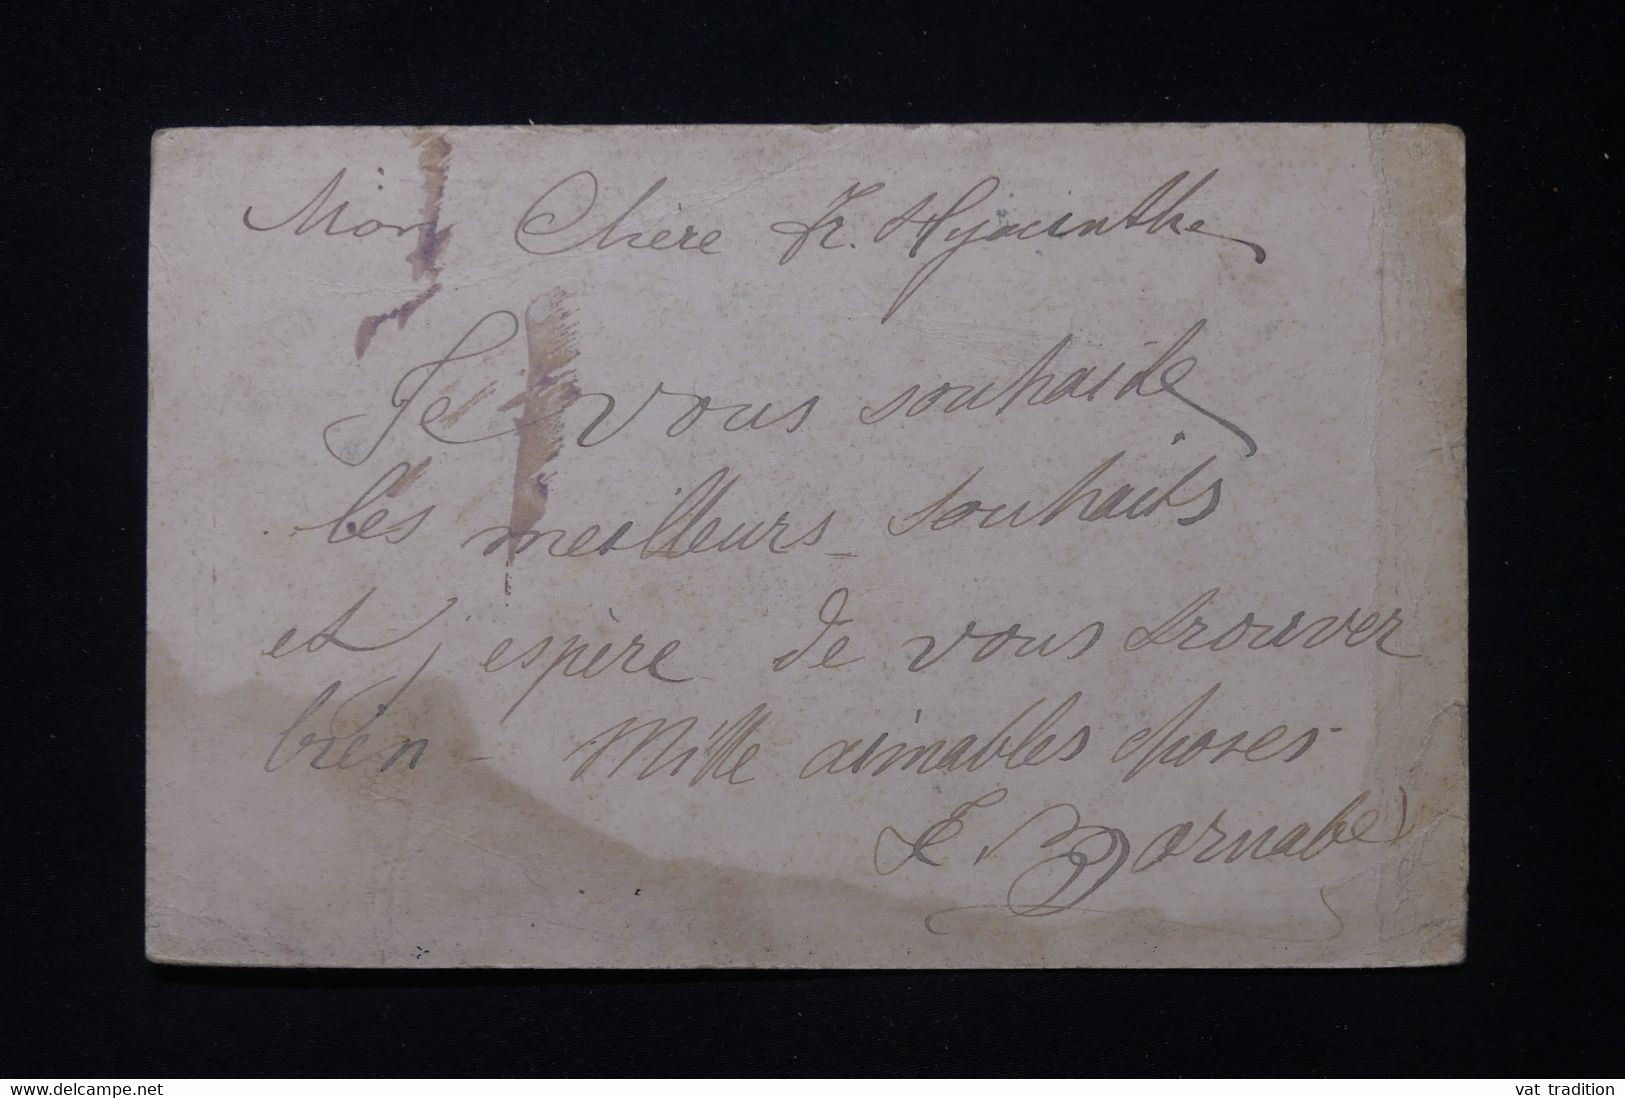 Mon Chère Fr. Hyacinthe
Je vous souhaite
les meilleurs souhaits
et j'espère de vous trouver
bien - Mille aimables choses
F. Barnabé
www.delcampe.net
vat tradition